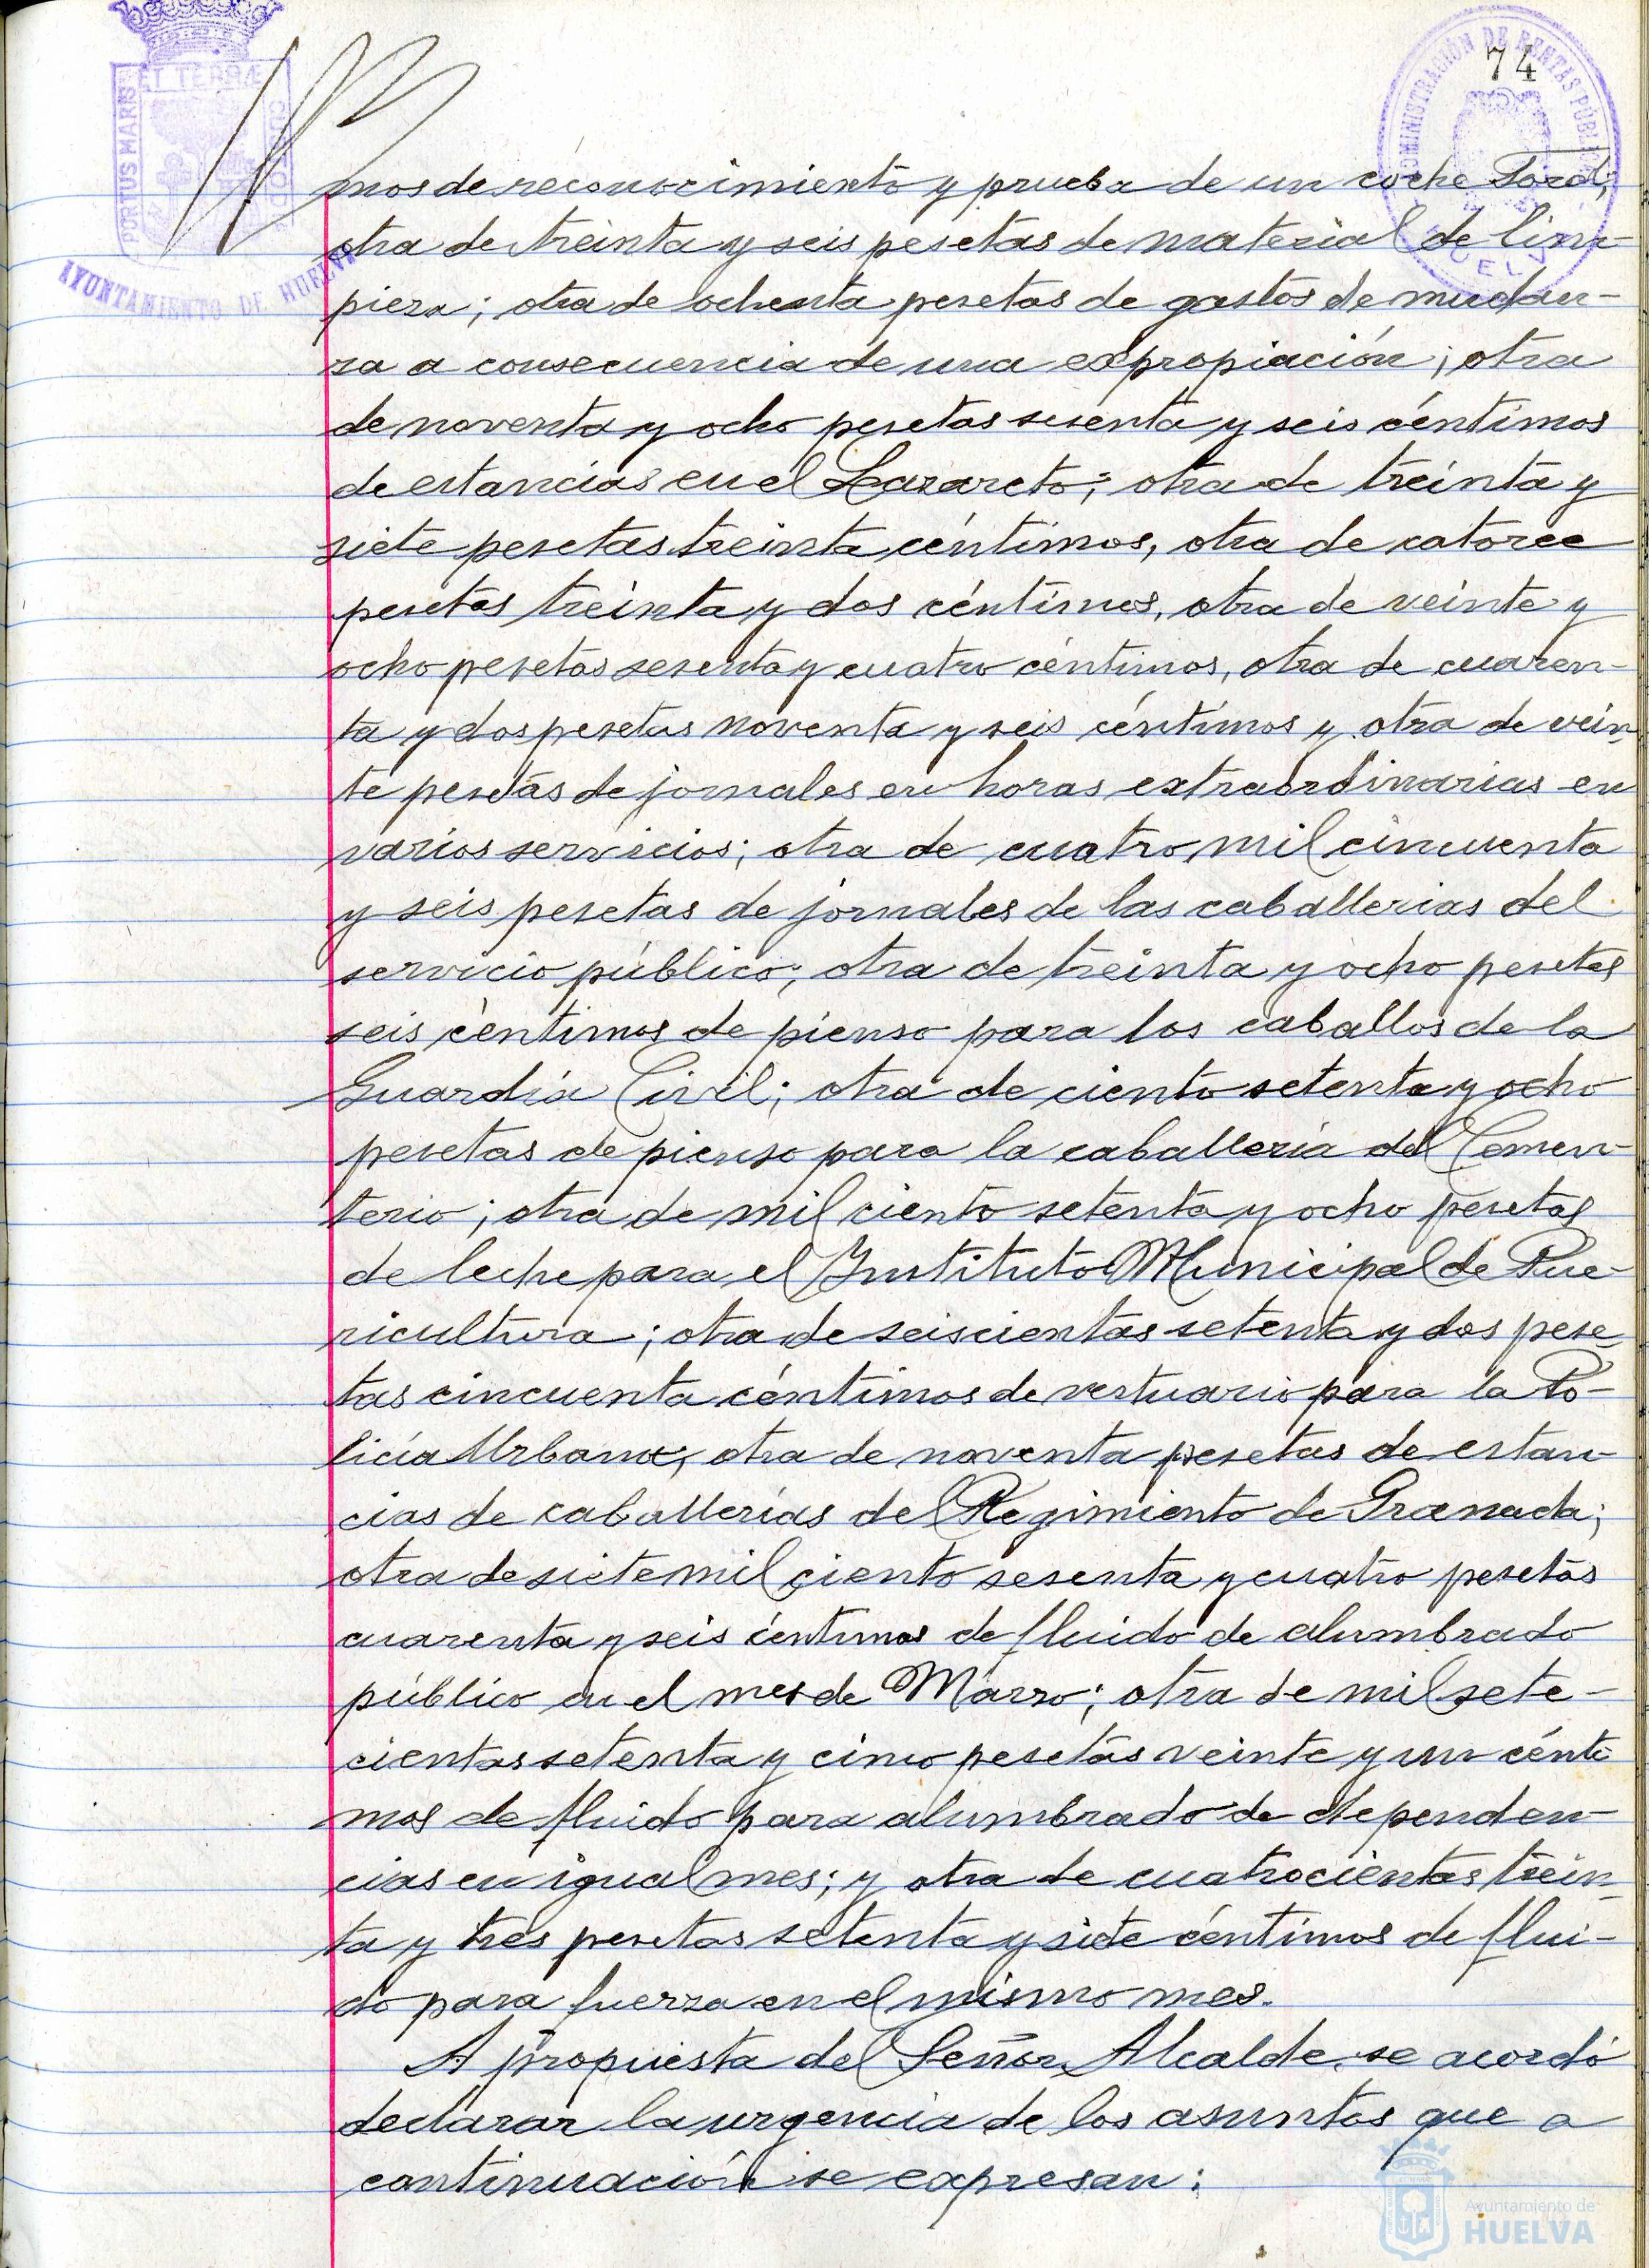 74
ET TERRÆ
PORTUS MARIS
CUSTODIA
AYUNTAMIENTO DE HUELVA
ADMINISTRACIÓN DE RENTAS PÚBLICAS
HUELVA
mos de reconocimiento y prueba de un coche Ford;
otra de treinta y seis pesetas de material de lim-
pieza; otra de ochenta pesetas de gastos de mudan-
za a consecuencia de una expropiación; otra
de noventa y ocho pesetas sesenta y seis céntimos
de estancias en el Lazareto; otra de treinta y
siete pesetas treinta céntimos, otra de catorce
pesetas treinta y dos céntimos, otra de veinte y
ocho pesetas sesenta y cuatro céntimos, otra de cuaren-
ta y dos pesetas noventa y seis céntimos y otra de vein-
te pesetas de jornales en horas extraordinarias en
varios servicios; otra de cuatro mil cincuenta
y seis pesetas de jornales de las caballerias del
servicio público; otra de treinta y ocho pesetas
seis céntimos de pienso para los caballos de la
Guardia Civil; otra de ciento setenta y ocho
pesetas de pienso para la caballería del Cemen-
terio; otra de mil ciento setenta y ocho pesetas
de leche para el Instituto Municipal de Pue-
ricultura; otra de seiscientas setenta y dos pese-
tas cincuenta céntimos de vestuario para la Po-
licía Urbana; otra de noventa pesetas de estan-
cias de caballerías del Regimiento de Granada;
otra de siete mil ciento sesenta y cuatro pesetas
cuarenta y seis céntimos de fluido de alumbrado
público en el mes de Marzo; otra de mil sete-
cientas setenta y cinco pesetas veinte y un cénti
mos de fluido para alumbrado de dependen-
cias en igual mes; y otra de cuatrocientas trein-
ta y tres pesetas setenta y siete céntimos de flui-
do para fuerza en el mismo mes.
A propuesta del Señor Alcalde, se acordó
declarar la urgencia de los asuntos que a
continuación se expresan:
Ayuntamiento de
HUELVA